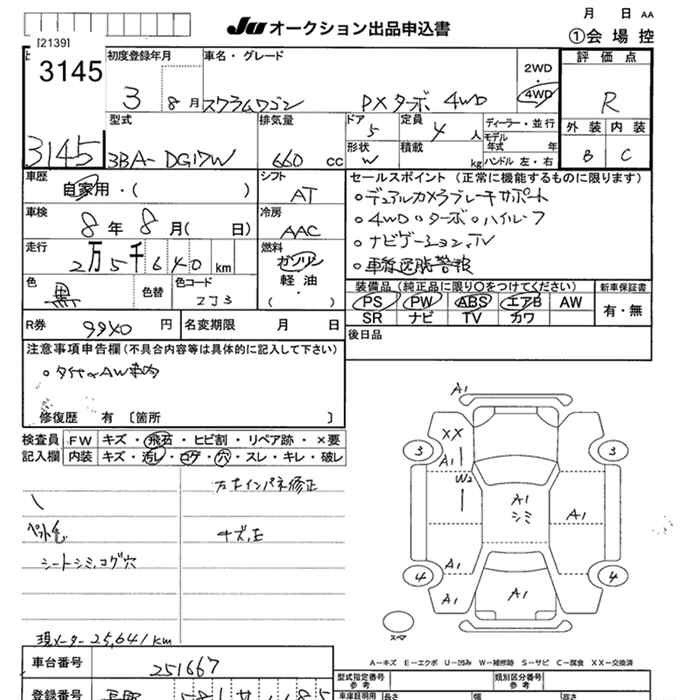 JU オークション出品申込書
月 日 AA
①会場控
[2139]
3145
3145
初度登録年月
3 8月
車名・グレード
スクラムワゴン PXターボ 4WD
2WD
・
4WD
評価点
R
外装 内装
B C
型式
3BA-DG17W
排気量
660 cc
ドア
5
定員
4 人
形状
W
積載
kg
ディーラー・並行
モデル
年式 年
ハンドル 左・右
車歴
自家用・( )
シフト
AT
車検
8年 8月( 日)
冷房
AAC
走行
2万5千640 km
燃料
ガソリン
軽油
・
( )
色
黒
色替
色コード
ZJ3
R券 9940 円
名変期限 月 日
セールスポイント (正常に機能するものに限ります)
○デュアルカメラブレーキサポート
○4WD○ターボ○ハイルーフ
○ナビゲーション,TV
○車線逸脱警報
装備品 (純正品に限り○をつけてください)
PS PW ABS エアB AW
SR ナビ TV カワ
新車保証書
有・無
後日品
注意事項申告欄 (不具合内容等は具体的に記入して下さい)
修復歴 有 〔箇所 〕
検査員
記入欄
FW キズ・飛石・ヒビ割・リペア跡・×要
内装 キズ・汚レ・コゲ・穴・スレ・キレ・破レ
シートシミ,コゲ穴
現メーター25,641km
A1
XX
A1
W2
A1
シミ
A1
A1
A1
A1
A1
3
3
4
4
スペア
A―キズ E―エクボ U―凹み W―補修跡 S―サビ C―腐食 XX―交換済
車台番号
251667
登録番号
型式指定番号
参考
類別区分番号
参考
車庫証明用 長さ 幅 高さ